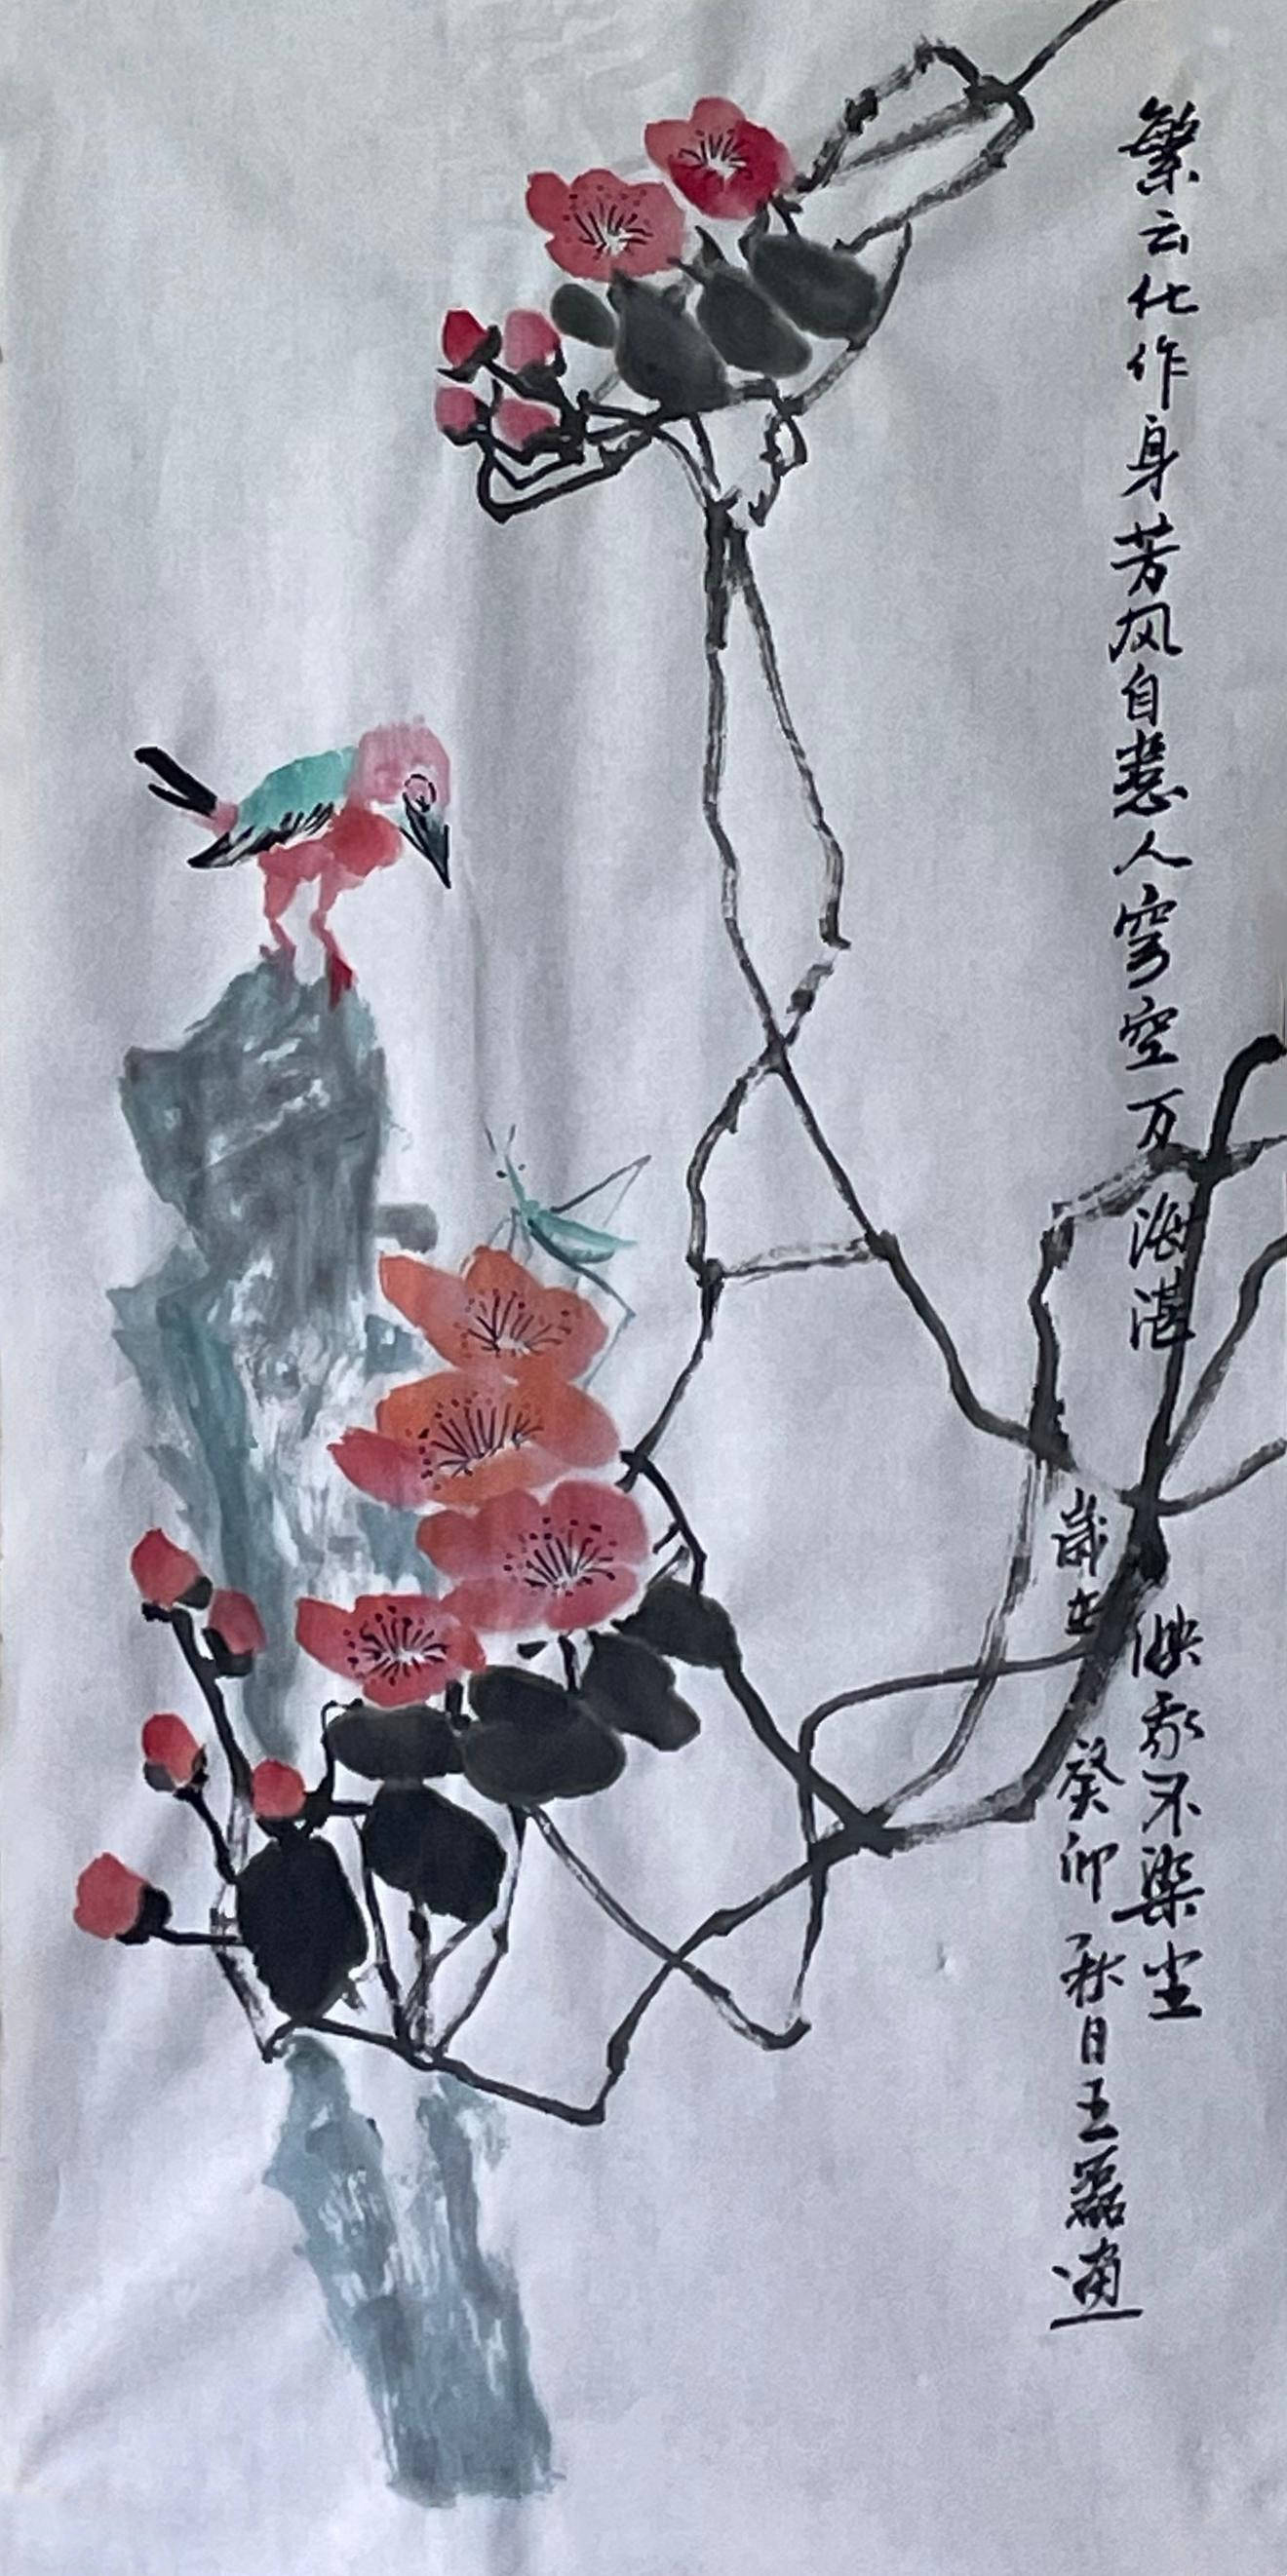 繁云化作身芳风自惹人穹空万海湛映我不染尘
歲在癸卯秋日王磊画